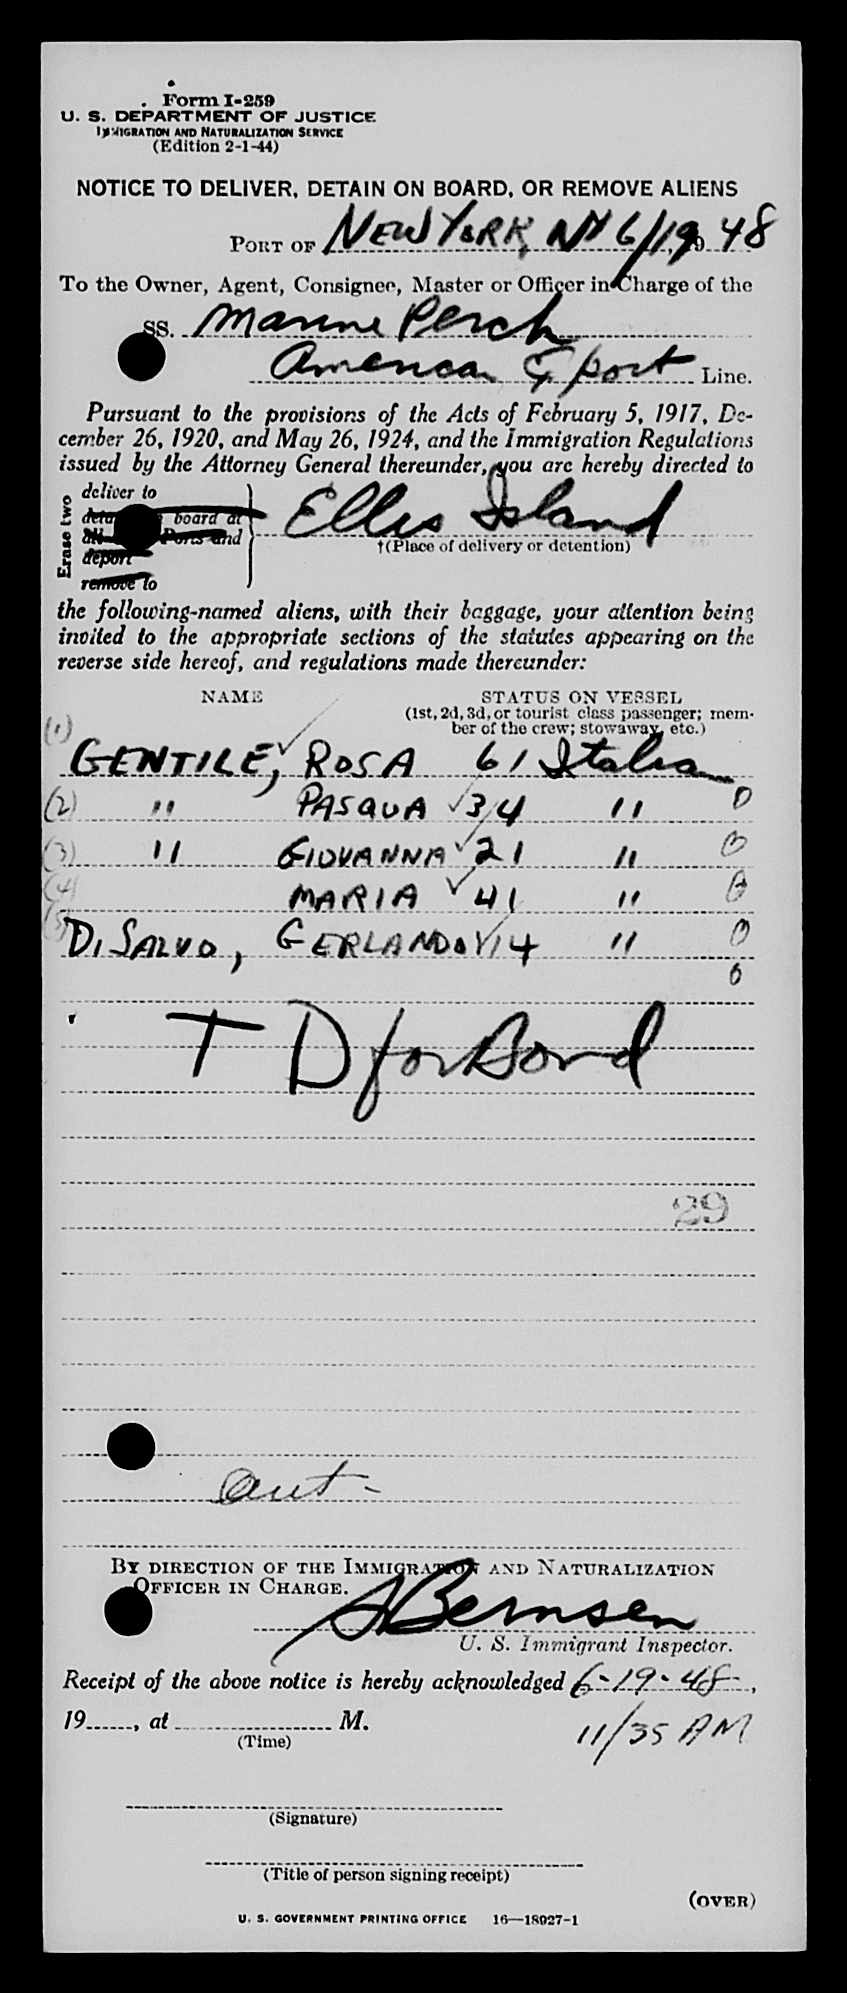 Form I-259
U. S. DEPARTMENT OF JUSTICE
IMMIGRATION AND NATURALIZATION SERVICE
(Edition 2-1-44)
NOTICE TO DELIVER, DETAIN ON BOARD, OR REMOVE ALIENS
PORT OF NEW YORK, NY 6/19 48
To the Owner, Agent, Consignee, Master or Officer in Charge of the
SS. Marine Perch
American Export Line.
Pursuant to the provisions of the Acts of February 5, 1917, De-
cember 26, 1920, and May 26, 1924, and the Immigration Regulations
issued by the Attorney General thereunder, you are hereby directed to
Erase two
deliver to
board at
Ports and
deport
remove to
Ellis Island
†(Place of delivery or detention)
the following-named aliens, with their baggage, your attention being
invited to the appropriate sections of the statutes appearing on the
reverse side hereof, and regulations made thereunder:
NAME STATUS ON VESSEL
(1st, 2d, 3d, or tourist class passenger; mem-
ber of the crew; stowaway, etc.)
(1) GENTILE, ROSA 61 Italian
(2) " PASQUA 34 " 0
(3) " GIOVANNA 21 " 0
(4) MARIA 41 " 0
(5) DISALVO, GERLANDO 14 " 0
0
T D for Bond
29
Out -
BY DIRECTION OF THE IMMIGRATION AND NATURALIZATION
OFFICER IN CHARGE.
Bernsen
U. S. Immigrant Inspector.
Receipt of the above notice is hereby acknowledged 6-19-48,
19......, at M. 11/35 AM
(Time)
(Signature)
(Title of person signing receipt)
(OVER)
U. S. GOVERNMENT PRINTING OFFICE 16—18927-1